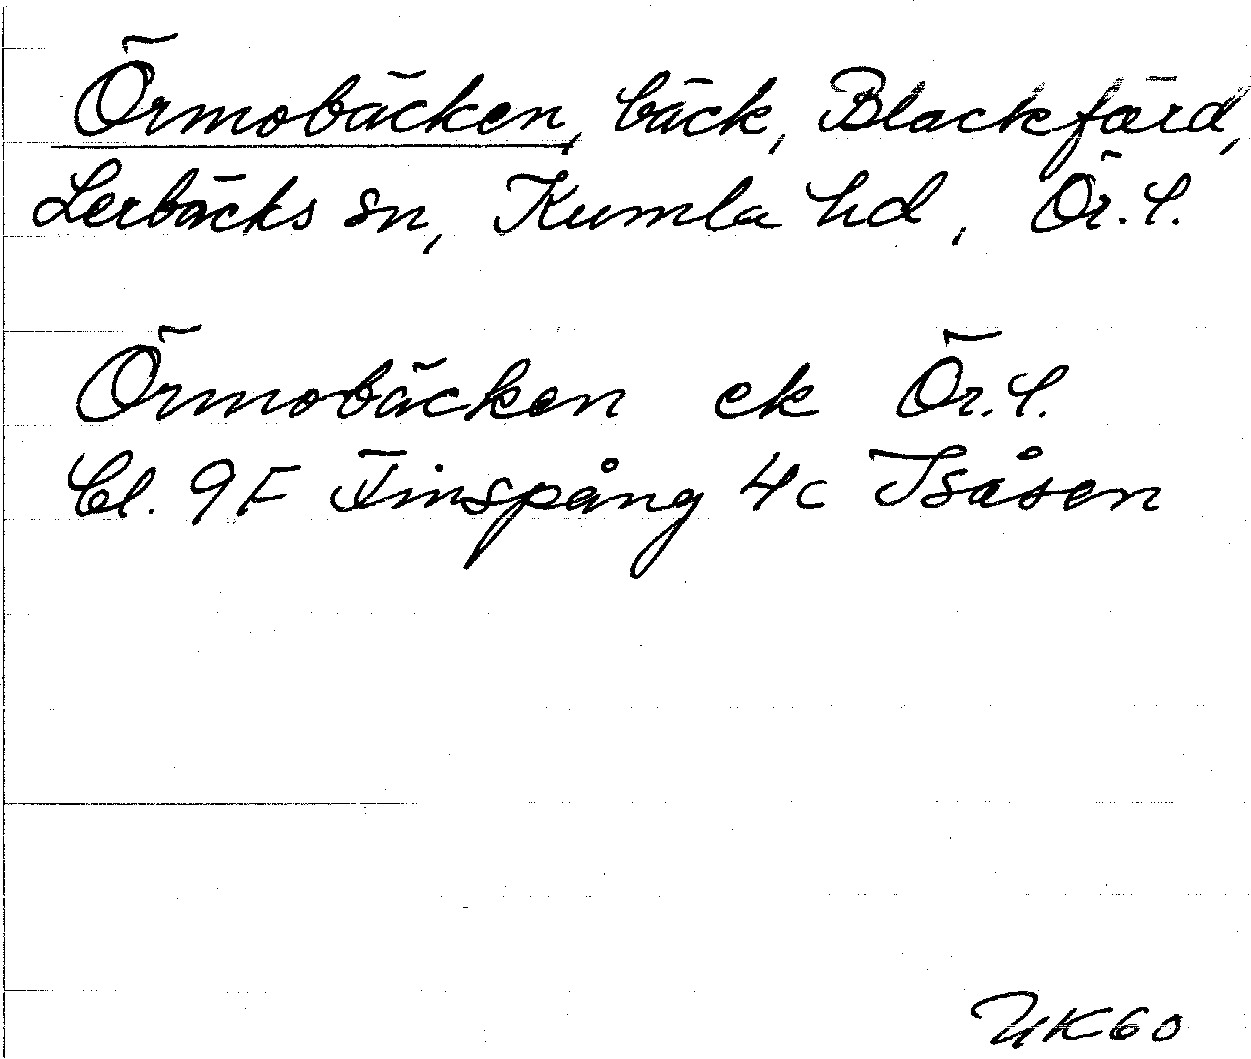 Örmobäcken, bäck, Blackfärd,
Lerbäcks sn, Kumla hd, Ör.l.
Örmobäcken ek Ör.l.
Bl. 9F Finspång 4c Isåsen
UK60